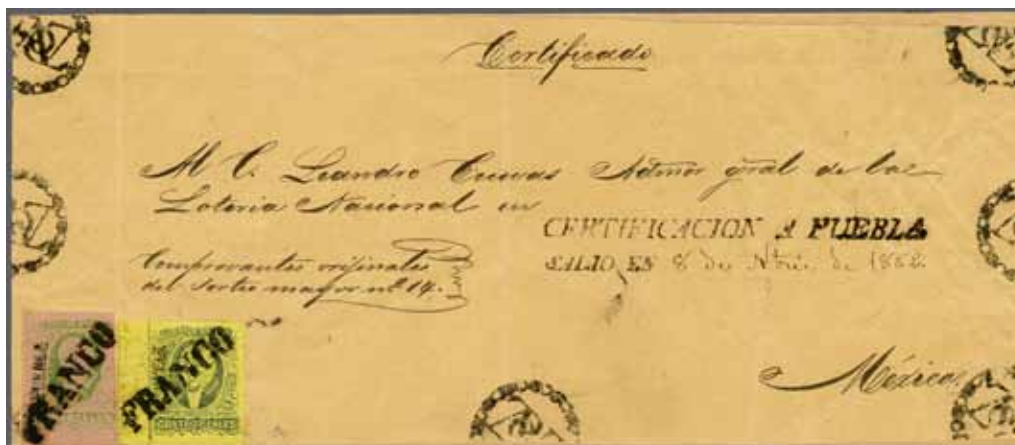 Certificado
Al C. Leandro Cuevas Admor gral de la
Loteria Nacional en
CERTIFICACION A PUEBLA
SALIO EN 8 de de 1862.
Comprovantes originales
del Sorteo mayor nº 14.
FRANCO
FRANCO
CUATRO REALES
México